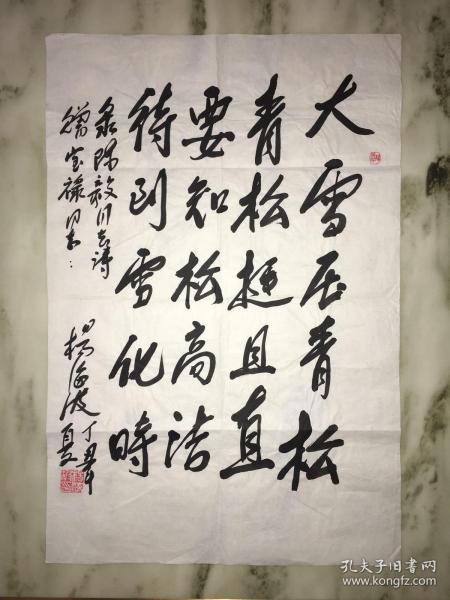 大雪压青松
青松挺且直
要知松高洁
待到雪化時
录陈毅同志詩
赠宝禄同志：
杨海波
丁丑年
夏
孔夫子旧书网
www.kongfz.com